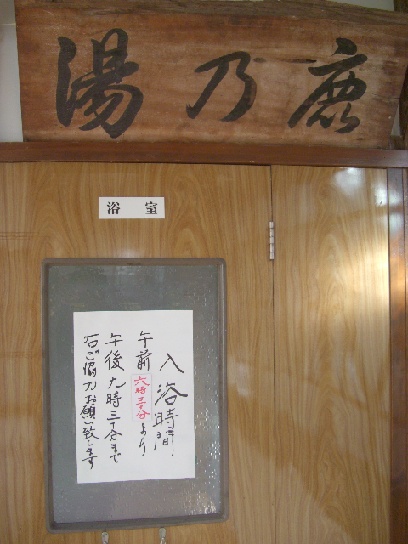 鹿乃湯
浴室
入浴時間
午前六時三十分より
午後九時三十分まで
右ご協力お願い致します